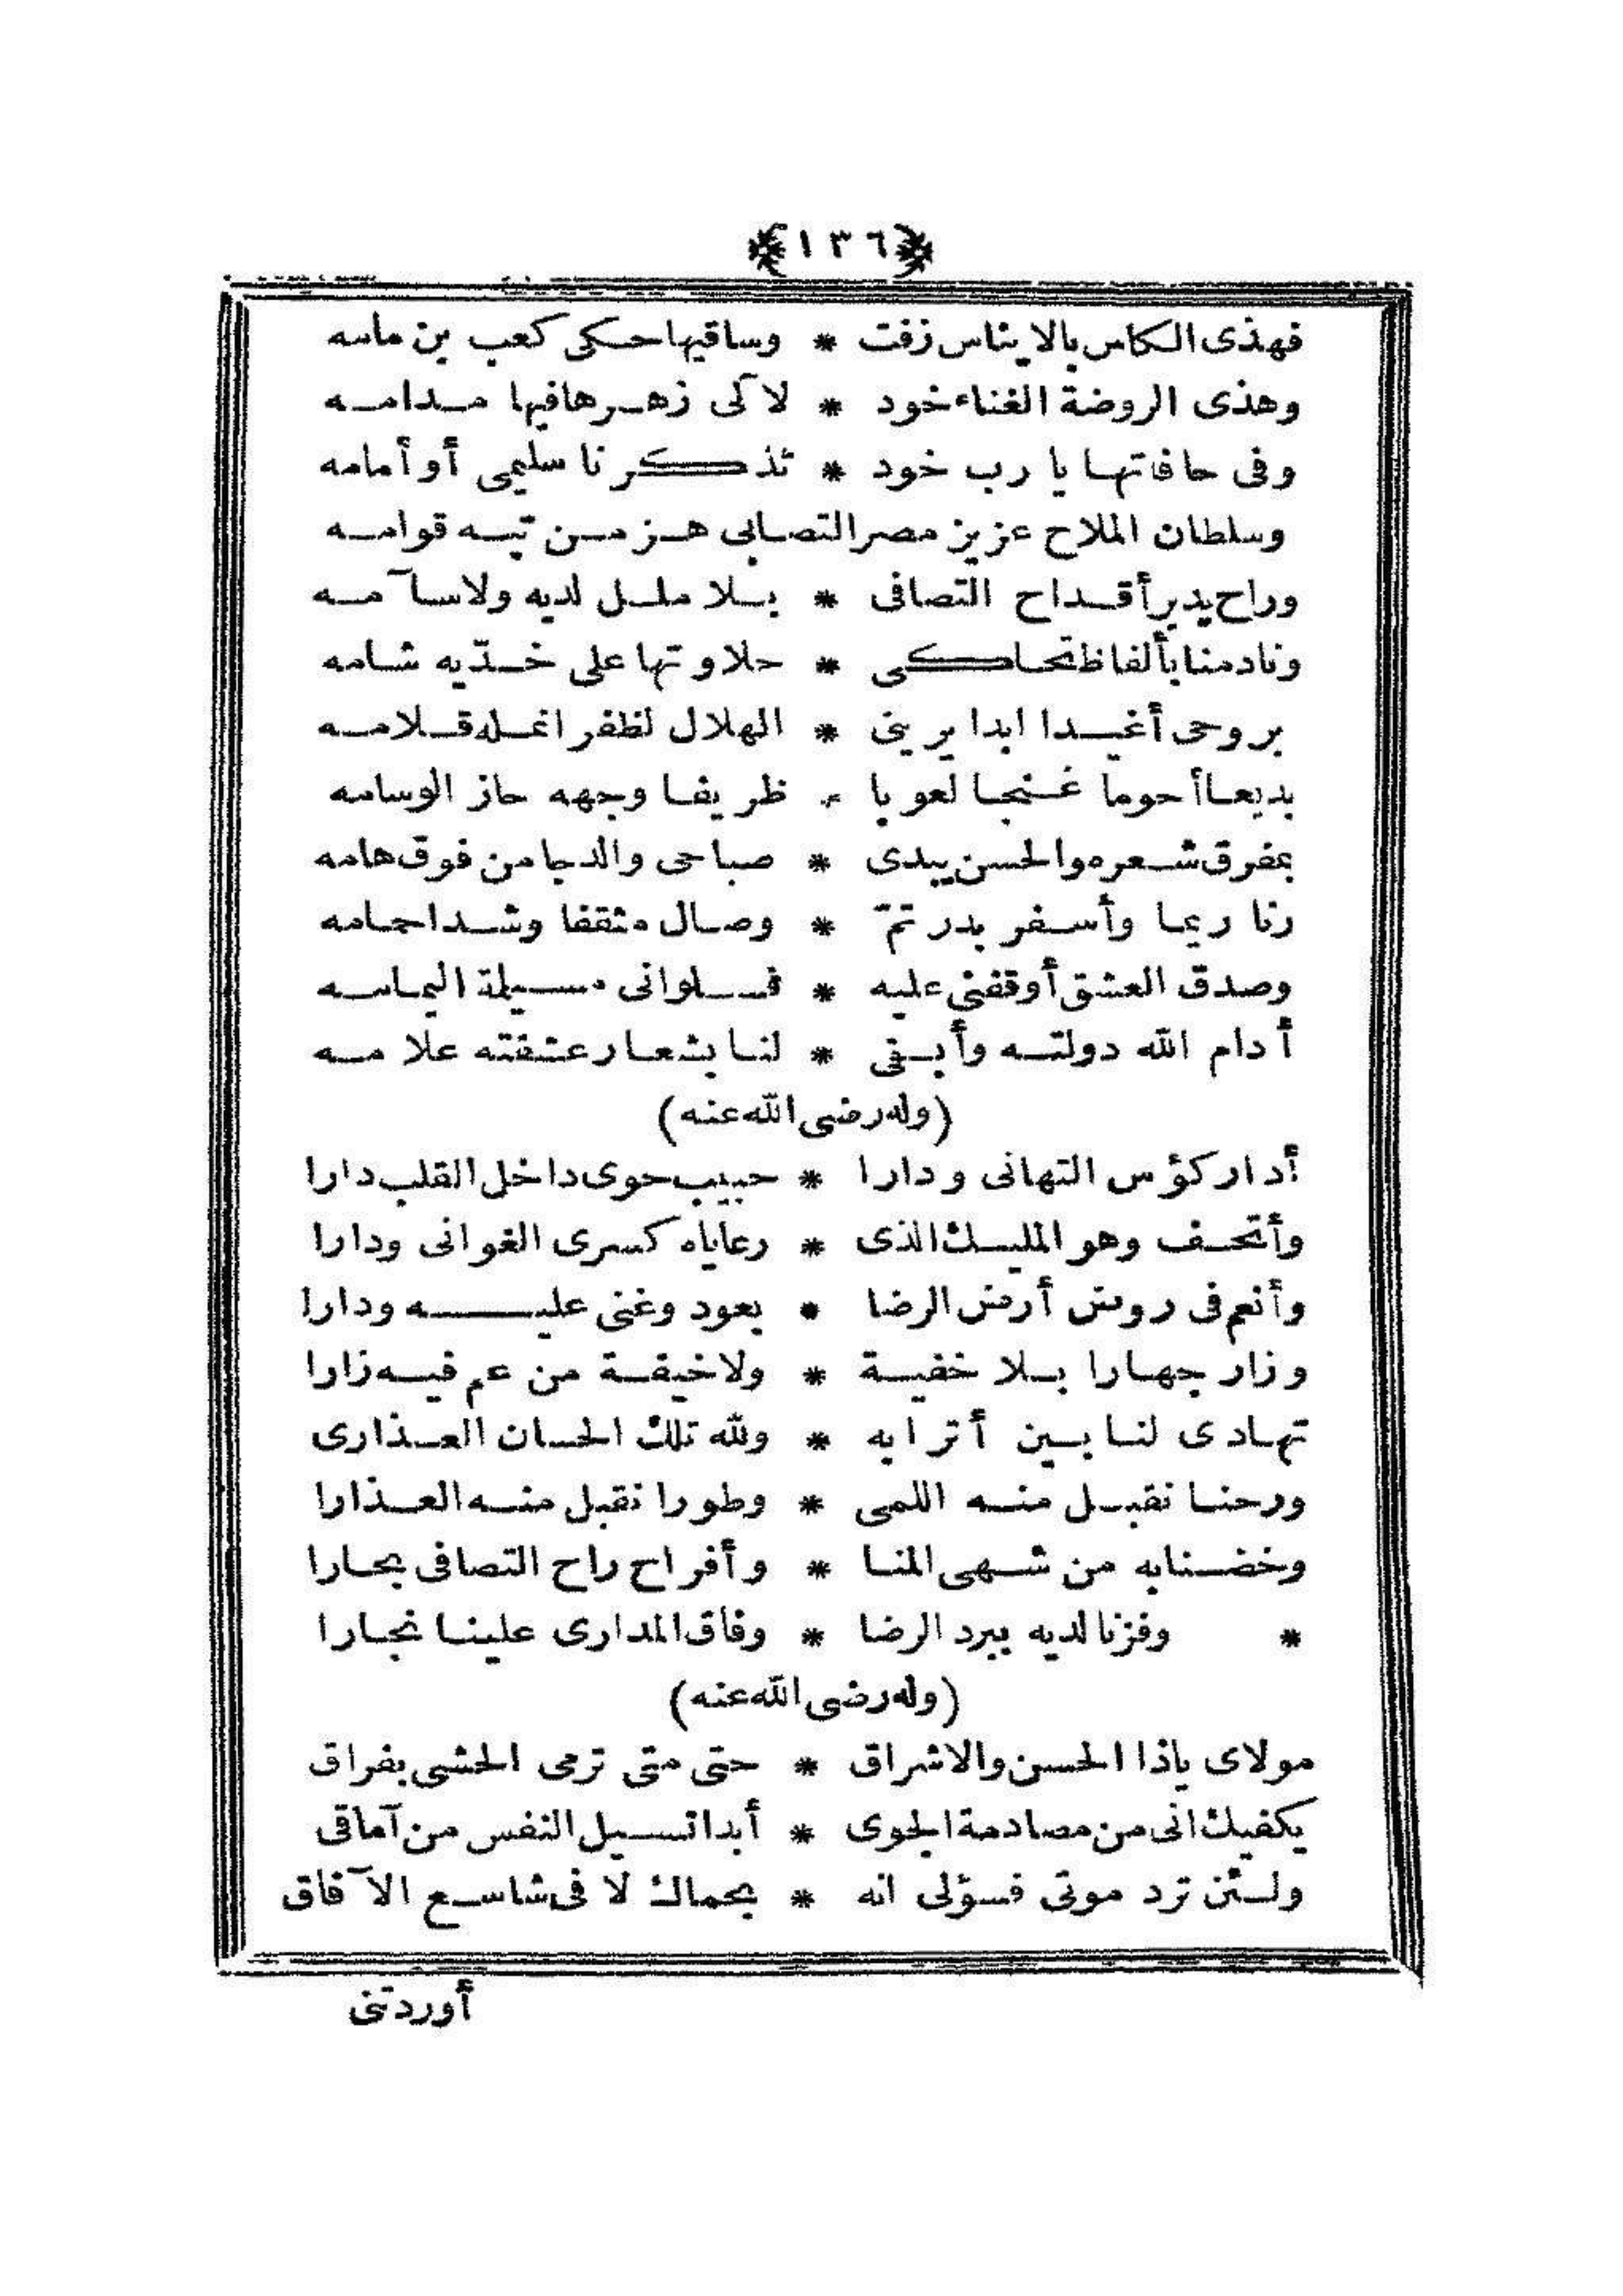 ﴿١٣٦﴾
فهذى الكاس بالايناس زفت * وساقيها حكى كعب بن مامه
وهذى الروضة الغناء خود * لآلى زهرها فيها مدامه
وفى حافاتها يا رب خود * تذكرنا سليمى أو أمامه
وسلطان الملاح عزيز مصر التصابى هز من تيه قوامه
وراح يدير أقداح التصافى * بلا ملل لديه ولا سآمه
ونادمنا بألفاظ تحاكى * حلاوتها على خدّيه شامه
بروحى أغيدا ابدا يرينى * الهلال لظفر انمله قلامه
بديعا أحوما غنجا لعوبا * ظريفا وجهه حاز الوسامه
بمفرق شعره والحسن يبدى * صباحى والدجا من فوق هامه
رنا ريما وأسفر بدر تمّ * وصال مثقفا وشدا حمامه
وصدق العشق أوقفنى عليه * فسلوانى مسيلمة اليمامه
أدام الله دولته وأبقى * لنا بشعار عشقته علامه
(وله رضى الله عنه)
أدار كؤس التهانى ودارا * حبيب حوى داخل القلب دارا
وأتحف وهو المليك الذى * رعاياه كسرى الغوانى ودارا
وأنعم فى روض أرض الرضا * بعود وغنى عليه ودارا
وزار جهارا بلا خفية * ولا خيفة من عم فيه زارا
تهادى لنا بين أترابه * ولله تلك الحسان العذارى
ورحنا نقبل منه اللمى * وطورا نقبل منه العذارا
وخضنا به من شهى المنا * وأفراح راح التصافى بحارا
* وفزنا لديه ببرد الرضا * وفاق المدارى علينا نجارا
(وله رضى الله عنه)
مولاى ياذا الحسن والاشراق * حتى متى ترمى الحشى بفراق
يكفيك انى من مصادمة الجوى * أبدا تسيل النفس من آماقى
ولئن ترد موتى فسؤلى انه * بجمالك لا فى شاسع الآفاق
أوردتنى